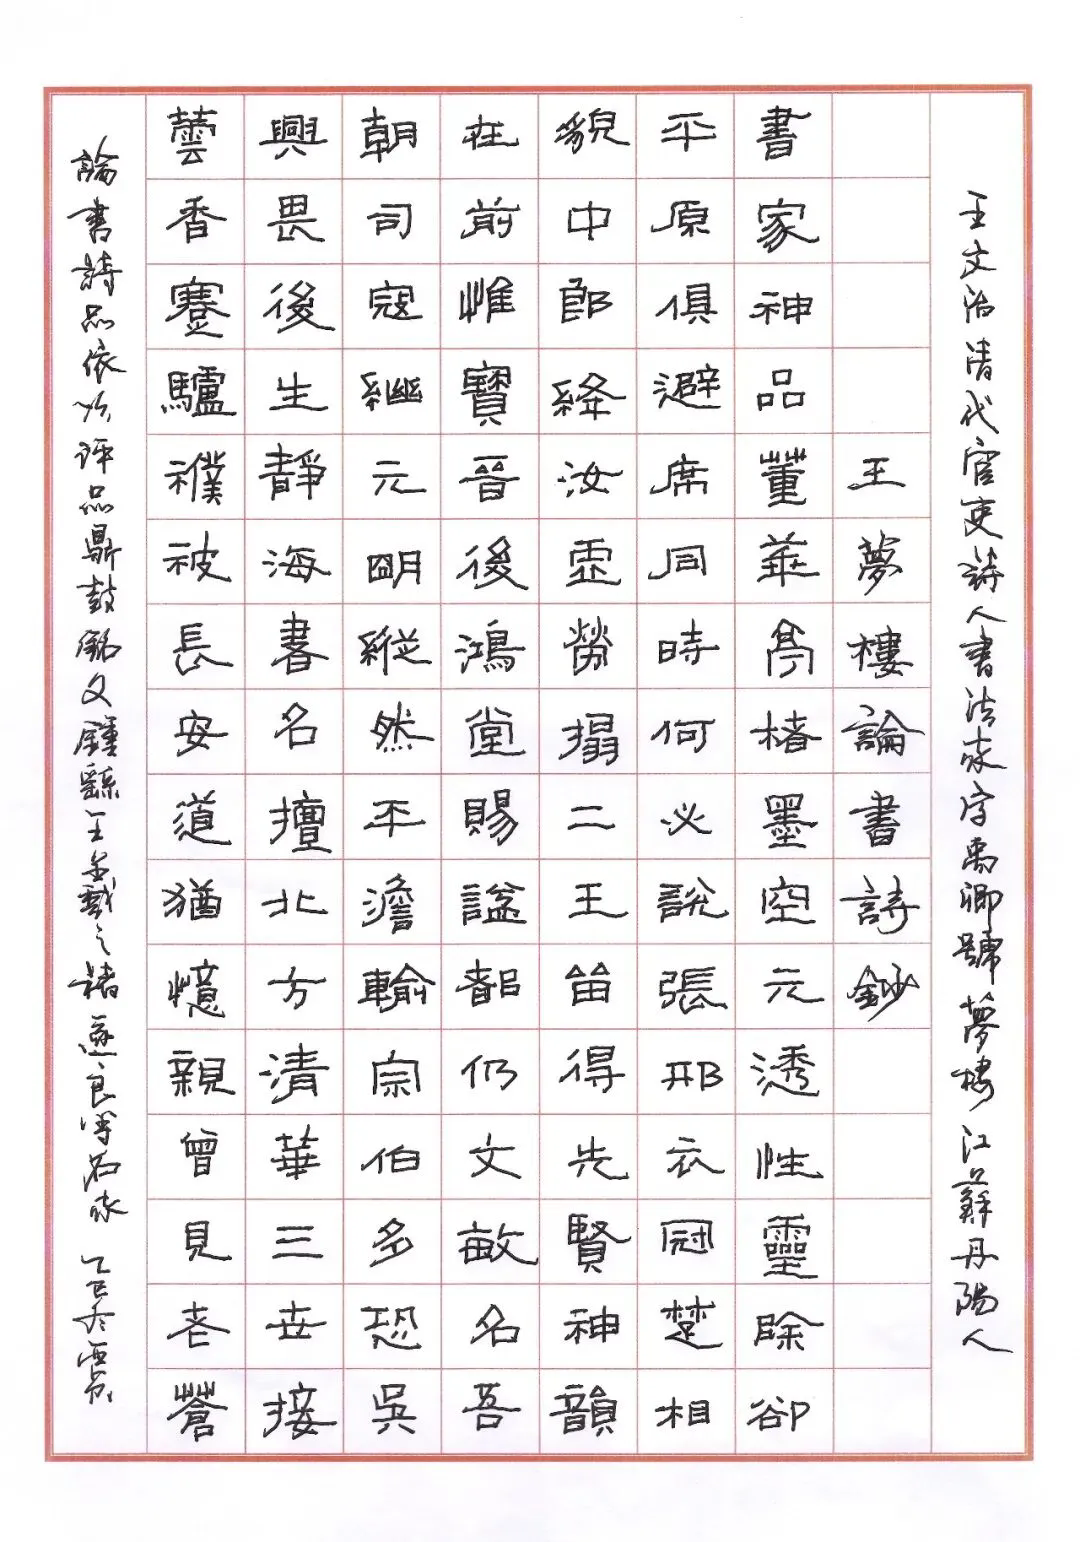 王文治清代官吏詩人書法家字禹卿號夢樓江蘇丹陽人
王夢樓論書詩鈔
書家神品董華亭楮墨空元透性靈除卻
平原俱避席同時何必說張邢衣冠楚相
貌中郎絳汝虛勞搨二王笛得先賢神韻
在前惟寶晉後鴻堂賜謚都仍文敏名吾
朝司寇繼元明縱然平澹輸宗伯多恐吳
興畏後生靜海書名擅北方清華三世接
蕓香蹇驢襆被長安道猶憶親曾見老蒼
論書詩品依次評品鼎鼓銘文鍾繇王羲之褚遂良等名家 乙巳冬